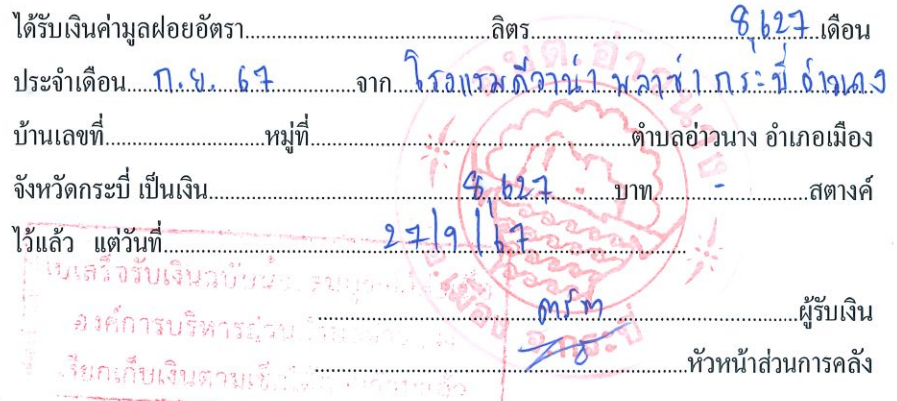 ได้รับเงินค่ามูลฝอยอัตรา..........ลิตร..........8,627..เดือน
ประจำเดือน....ก.ย. 67..........จาก..โรงแรมดีวาน่า พลาซ่า กระบี่ อ่าวนาง
บ้านเลขที่..........หมู่ที่..........ตำบลอ่าวนาง อำเภอเมือง
จังหวัดกระบี่ เป็นเงิน..........8,627..........บาท......-..........สตางค์
ไว้แล้ว แต่วันที่..........27/9/67..........
ใบเสร็จรับเงินฉบับนี้
..........ผู้รับเงิน
องค์การบริหารส่วน
..........หัวหน้าส่วนการคลัง
เรียกเก็บเงินตามเช็ค
อบต.อ่าวนาง
อ.เมือง จ.กระบี่